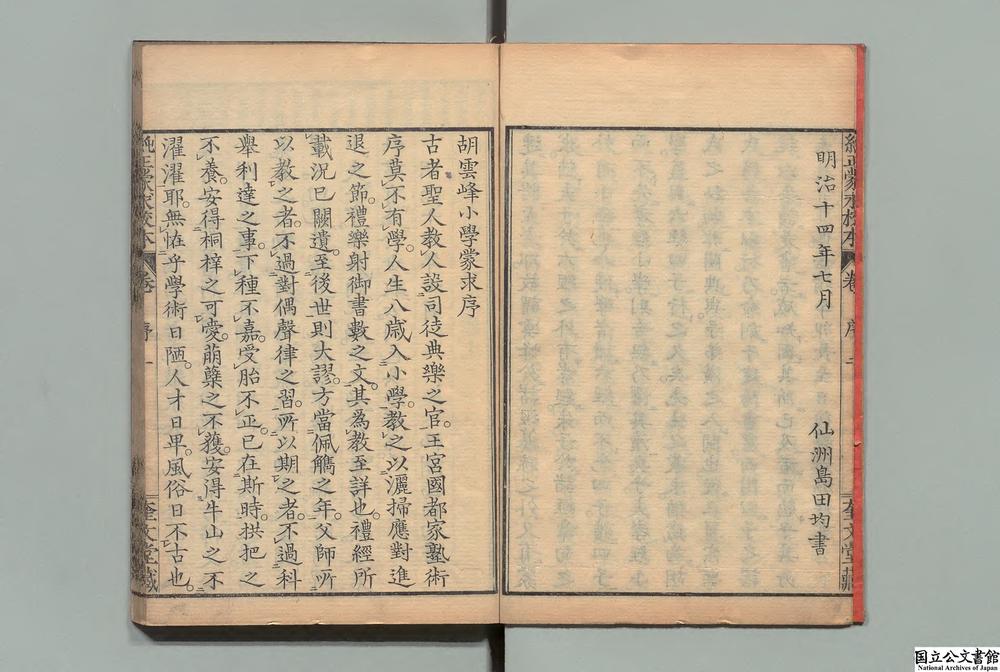 明治十四年七月
仙洲島田均書
純正蒙求校本
卷
序
二
奎文堂藏
胡雲峰小學蒙求序
古者聖人教人設司徒典樂之官。王宮國都家塾術
序莫不有學。人生八歲入小學。教之以灑掃應對進
退之節。禮樂射御書數之文。其為教至詳也。禮經所
載況已闕遺。至後世則大謬。方當佩觿之年。父師所
以教之者。不過對偶聲律之習。所以期之者。不過科
舉利達之事。下種不嘉。受胎不正。已在斯時。拱把之
不養。安得桐梓之可愛。萠蘖之不護。安得牛山之不
濯濯耶。無恠乎學術日陋。人才日卑。風俗日不古也。
純正蒙求校本
卷
序
一
奎文堂藏
国立公文書館
National Archives of Japan